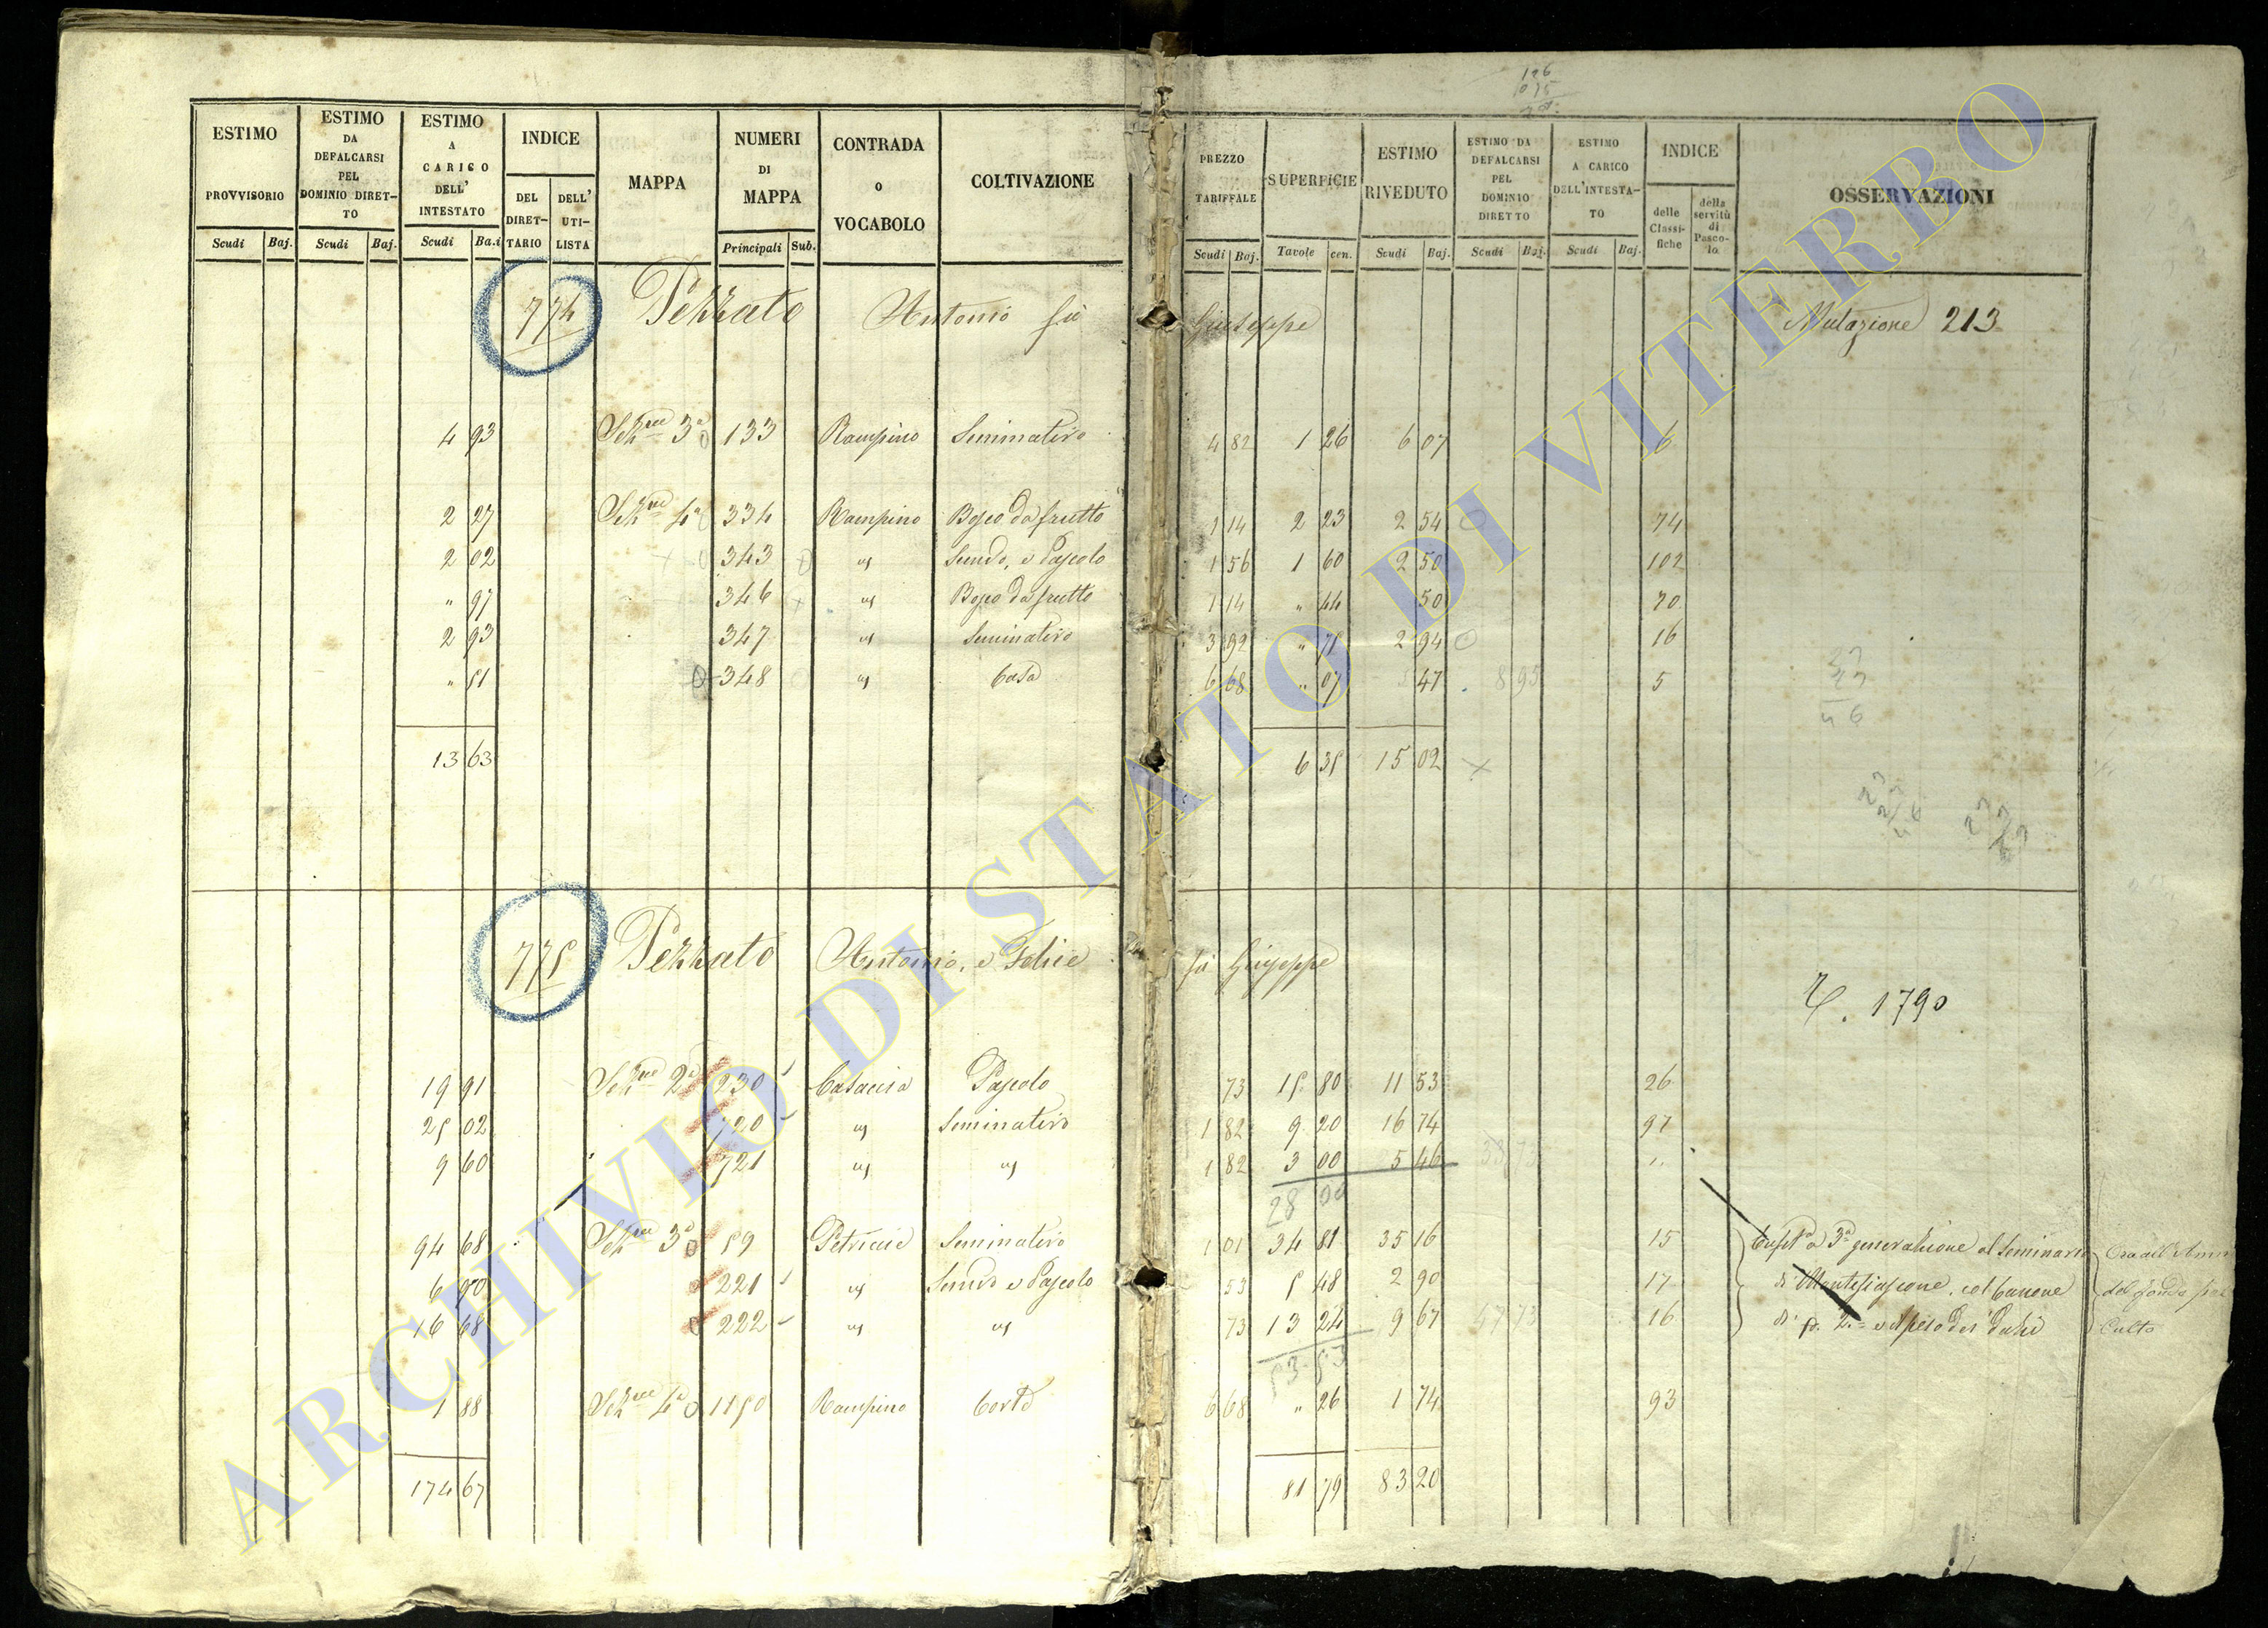 ESTIMO PROVVISORIO Scudi Baj.
ESTIMO DA DEFALCARSI PEL DOMINIO DIRET-TO Scudi Baj.
ESTIMO A CARICO DELL' INTESTATO Scudi Ba.i
INDICE DEL DIRET-TARIO DELL' UTI-LISTA
MAPPA
NUMERI DI MAPPA Principali Sub.
CONTRADA O VOCABOLO
COLTIVAZIONE
PREZZO TARIFFALE Scudi Baj.
SUPERFICIE Tavole cen.
ESTIMO RIVEDUTO Scudi Baj.
ESTIMO DA DEFALCARSI PEL DOMINIO DIRETTO Scudi Baj.
ESTIMO A CARICO DELL'INTESTA-TO Scudi Baj.
INDICE delle Classi-fiche della servitù di Pasco-lo
OSSERVAZIONI
774 Pezzato Antonio fu Giuseppe Mutazione 213
4 93 Sezne 3a 133 Rampino Seminativo 4 82 1 26 6 07 6
2 27 Sezne 4a 334 Rampino Bosco da frutto 1 14 2 23 2 54 74
2 02 343 " Semvo, e Pascolo 1 56 1 60 2 50 102
" 97 346 " Bosco da frutto 1 14 " 44 50 70
2 93 347 " Seminativo 3 92 " 75 2 94 16
" 51 348 " Casa 6 68 " 07 47 8 95 5
13 63 6 35 15 02
775 Pezzato Antonio, e Felice fu Giuseppe
1790
19 91 Sezne 2a 230 Casaccia Pascolo 73 15 80 11 53 26
25 02 720 " Seminativo 1 82 9 20 16 74 97
9 60 721 " " 1 82 3 00 5 46 33 73 "
28 00
94 68 Sezne 3a 59 Petricaie Seminativo 1 01 34 81 35 16 15 Enfita a 3a generazione al Seminario
6 90 221 " Semvo e Pascolo 53 5 48 2 90 17 di Montefiascone, col Canone
16 68 222 " " 73 13 24 9 67 47 73 16 di
53 53
1 88 Sezne 4a 1150 Rampino Corte 6 68 " 26 1 74 93
174 67 81 79 83 20
Ora dell'Amm
del fondo pel
Culto
ARCHIVIO DI STATO DI VITERBO